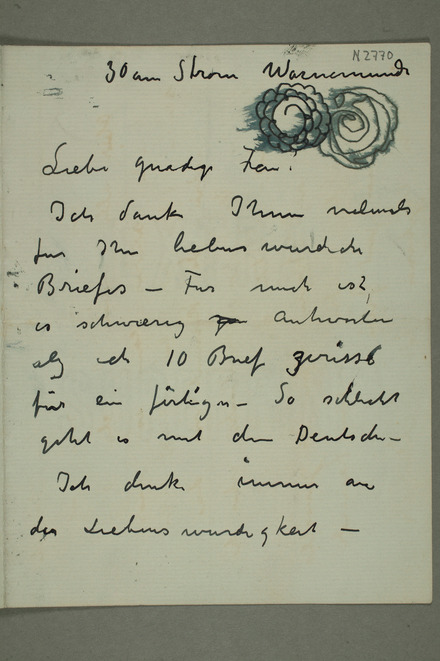 N 2770
30 am Strom Warnemünde
Liebe gnadige Frau!
Ich danke Ihnen vielmals
fur Ihr liebenswurdiche
Briefes – Fur mich ist,
es schwierig zu Antworten
als ich 10 Brief zerisse
für ein förtigen – So schlecht
geht es mit dem Deutsche –
Ich denke immer an
die Liebenswurdigkeit –